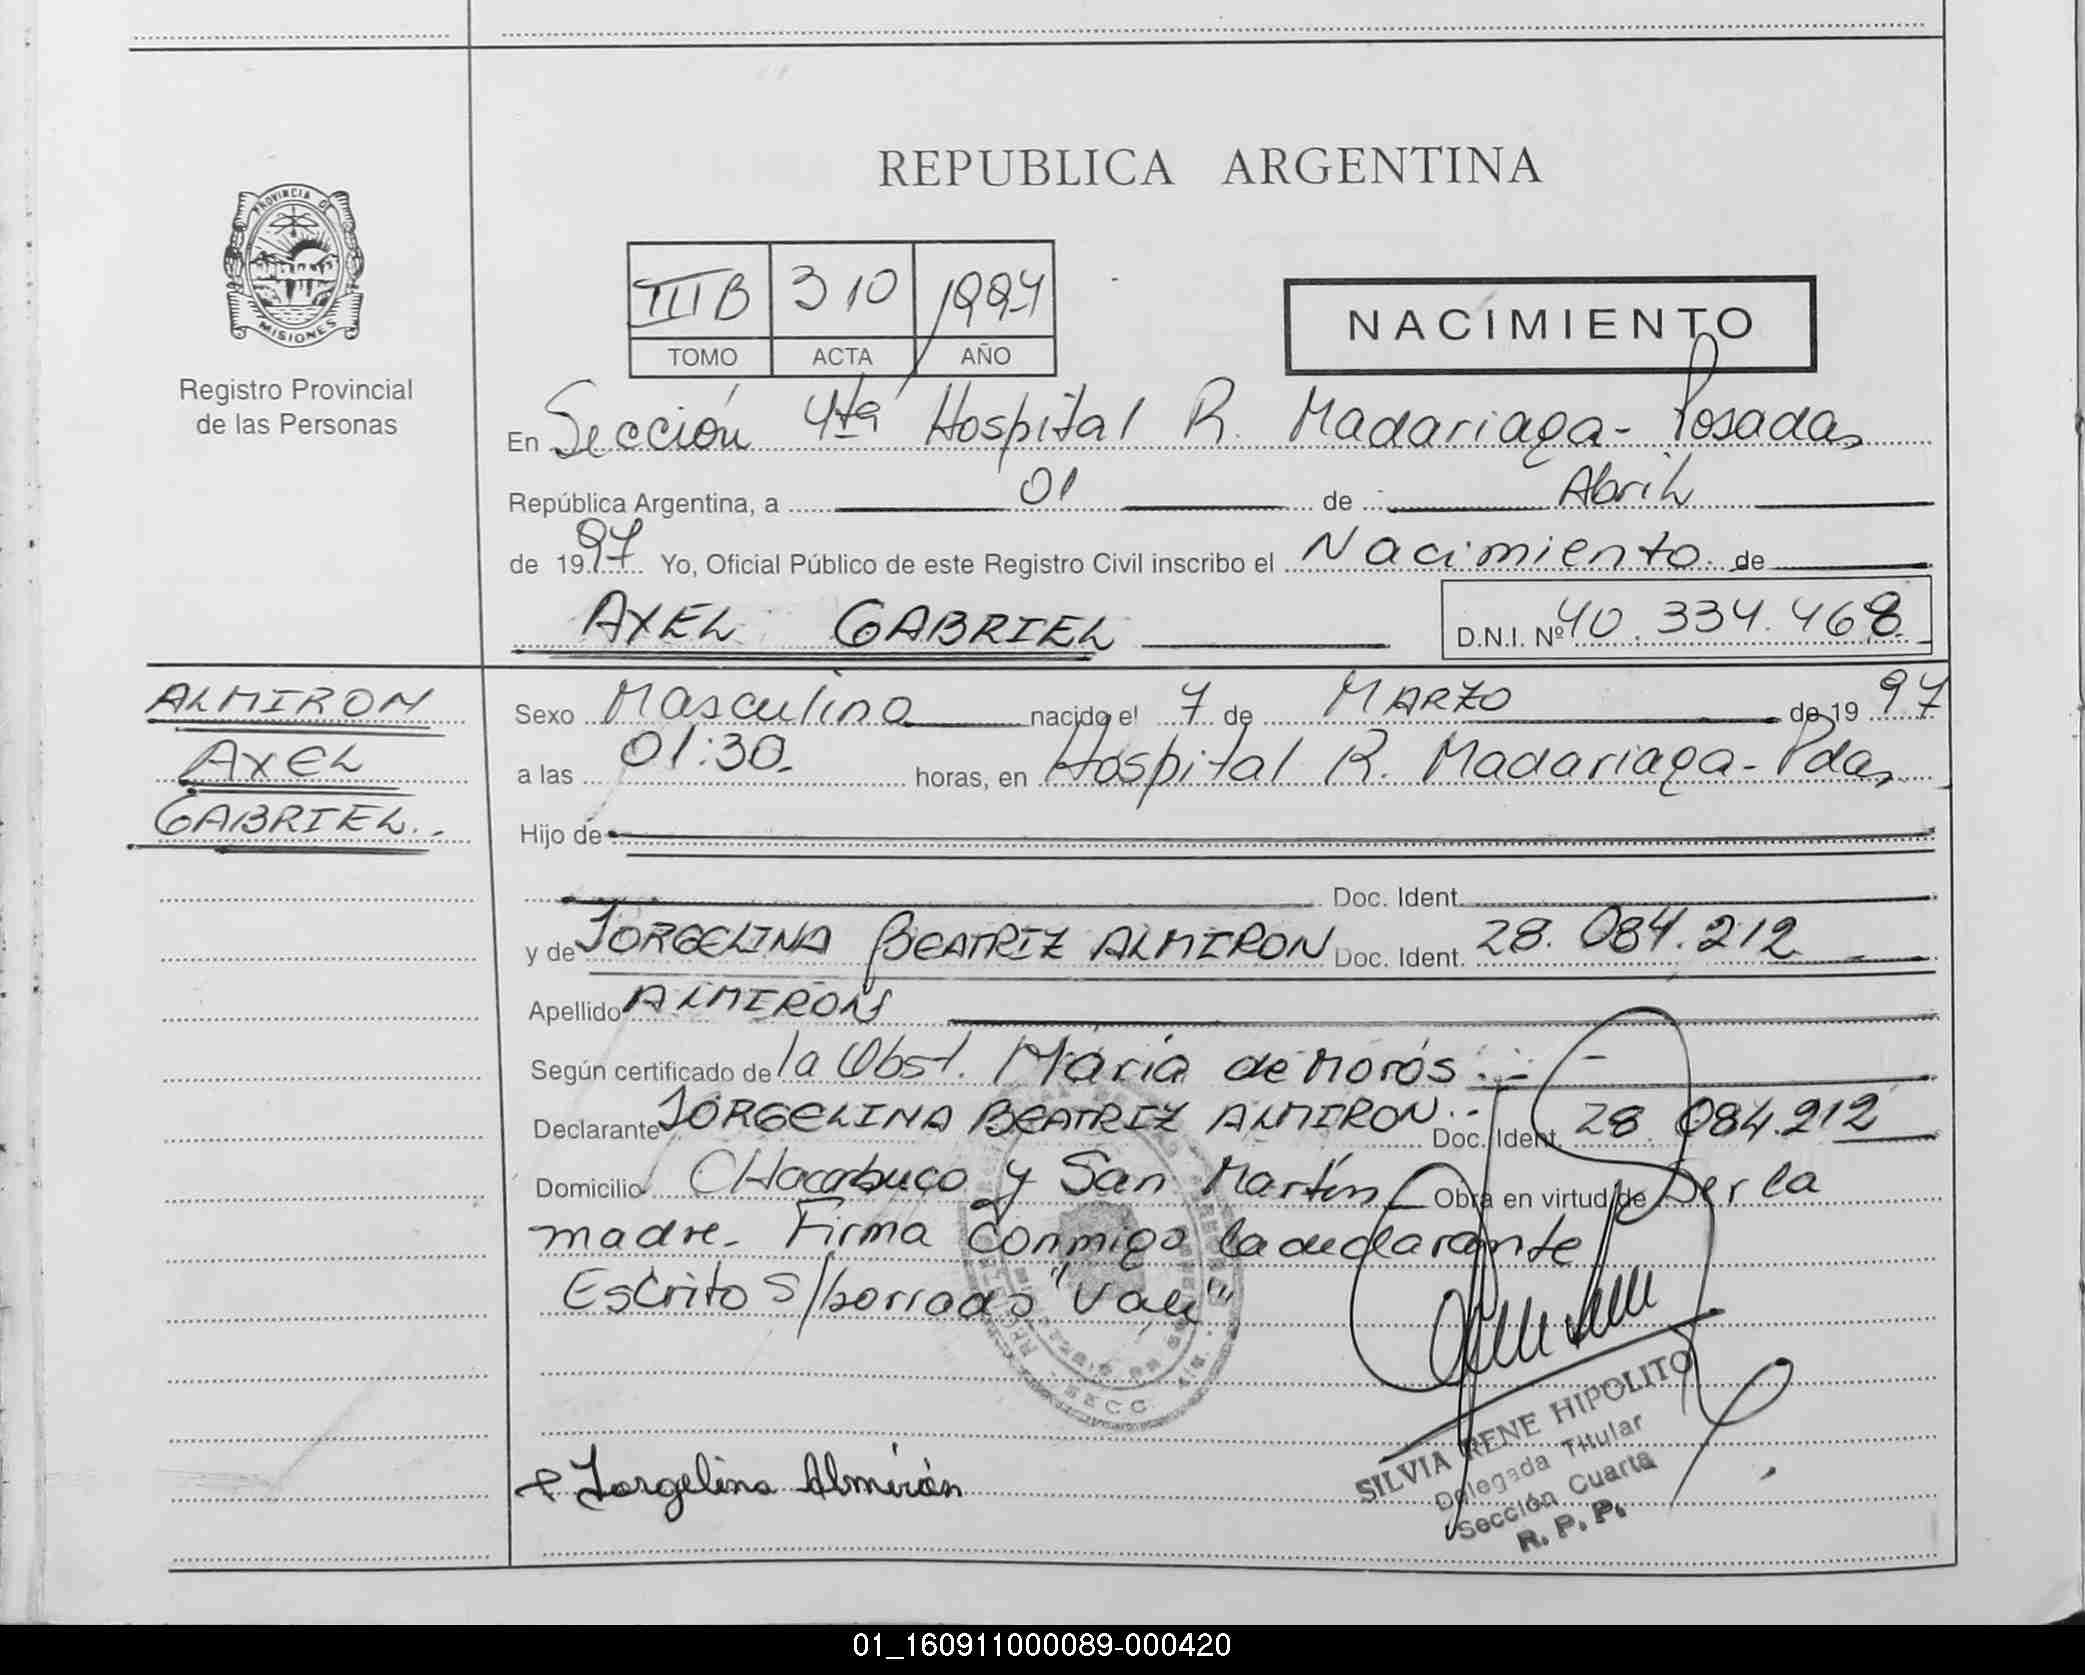 REPUBLICA ARGENTINA
PROVINCIA DE
MISIONES
Registro Provincial
de las Personas
IIIB 310 1997
TOMO ACTA AÑO
NACIMIENTO
En Sección 4ta Hospital R. Madariaga - Posadas
República Argentina, a 01 de Abril
de 1997 Yo, Oficial Público de este Registro Civil inscribo el Nacimiento de
AXEL GABRIEL D.N.I. Nº 40.334.468
ALMIRON
AXEL
GABRIEL.-
Sexo Masculino nacido el 7 de MARZO de 1997
a las 01:30 horas, en Hospital R. Madariaga - Pdas
Hijo de
Doc. Ident.
y de JORGELINA BEATRIZ ALMIRON Doc. Ident. 28.084.212
Apellido ALMIRON
Según certificado de la Obst. Maria de Morós.-
Declarante JORGELINA BEATRIZ ALMIRON.- Doc. Ident. 28.084.212
Domicilio CHacabuco y San Martín Obra en virtud de Ser la
madre. Firma conmigo la declarante
Escrito s/borrado "Vale"
Jorgelina Almirón
SILVIA RENE HIPOLITO
Delegada Titular
Sección Cuarta
R. P. P.
01_160911000089-000420